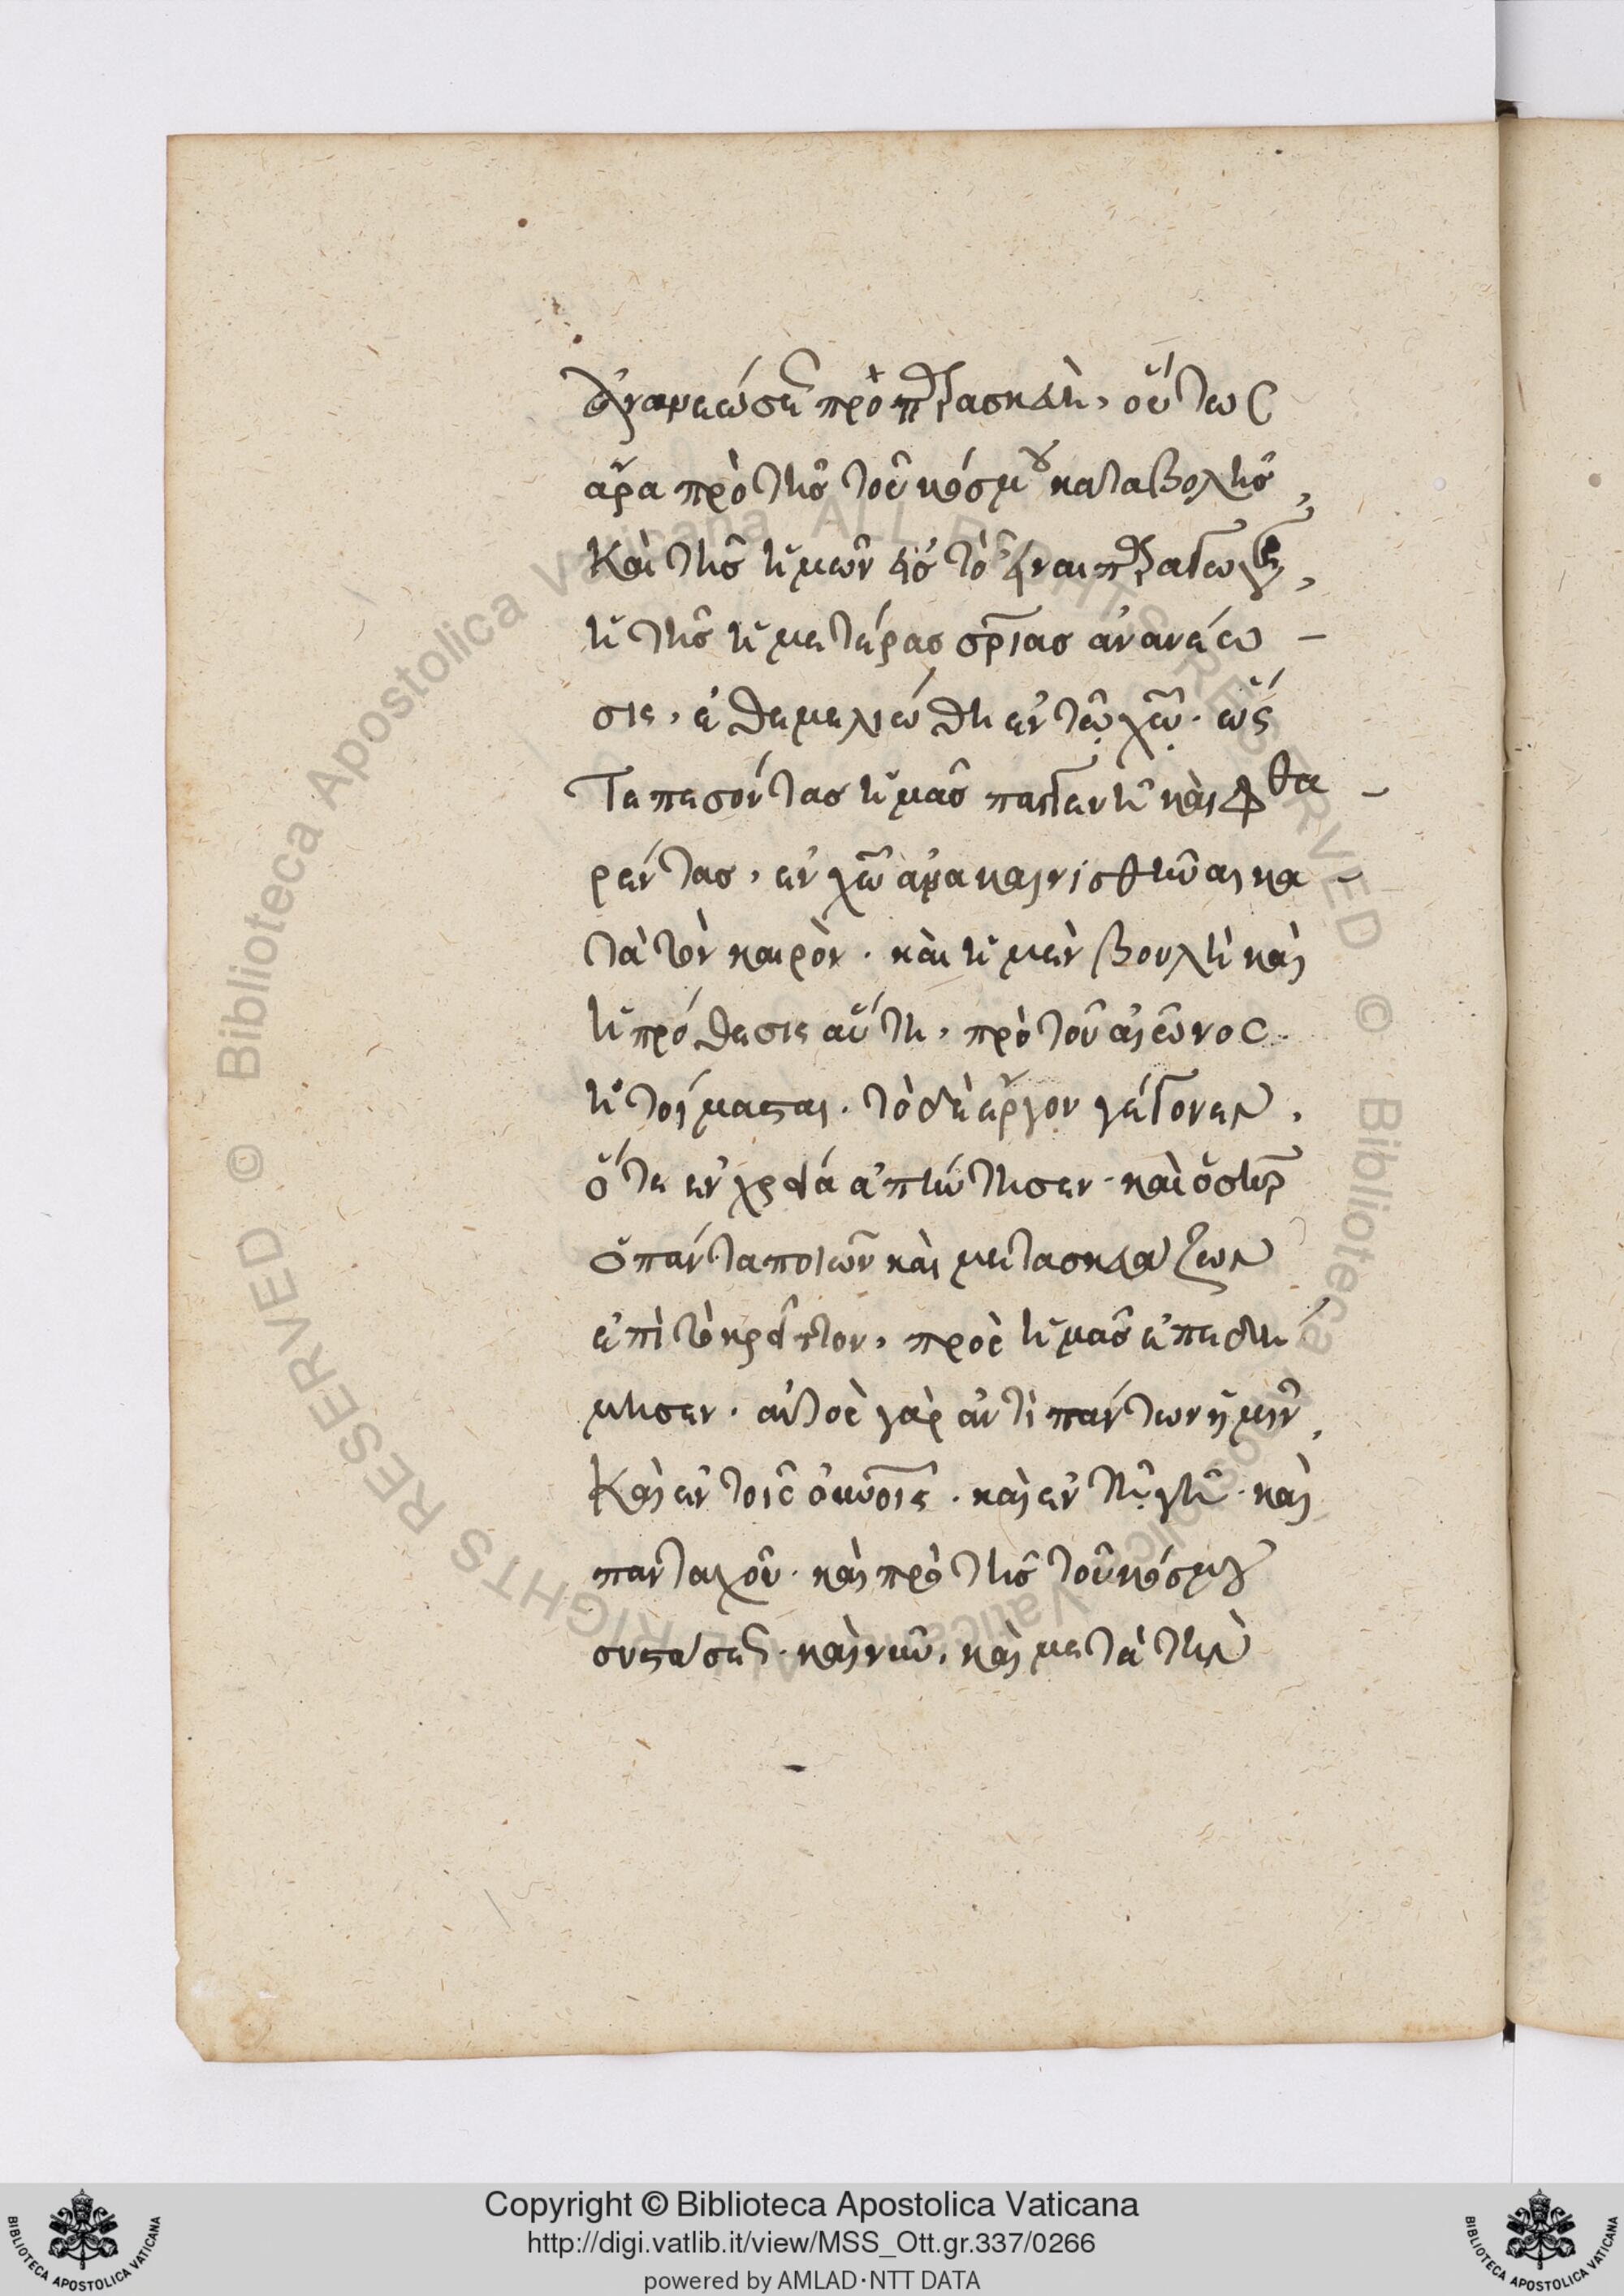 ἀνανεώσεως προπαρασκευή, οὕτως
ἄρα πρὸ τῆς τοῦ κόσμου καταβολῆς,
καὶ τῆς ἡμῶν εἰς τὸ εἶναι παραγωγῆς,
ἡ τῆς ἡμετέρας σρίας ἀνανέω-
σις, ἐθεμελιώθη ἐν τῷ χῶ. ὥς
τε πεσόντας ἡμᾶς παλγενῆ καὶ φθα-
ρέντας, ἐν χῶ ἀνακαινισθῆναι κα-
τὰ τὸν καιρὸν. καὶ ἡ μὲν βουλὴ καὶ
ἡ πρόθεσις αὕτη, πρὸ τοῦ αἰῶνος.
ἡτοίμασται. τὸ δὲ ἔργον γέγονεν,
ὅτε ἐν χρεία ἀπήντησεν. καὶ ὁ σηρ
ὁ πάντα ποιῶν καὶ μετασκευάζων
ἐπὶ τὸ κρεῖττον, πρὸς ἡμᾶς ἐπεδή
μησεν. αὐτὸς γὰρ ἀντὶ πάντων ἡμῖν,
καὶ ἐν τοῖς οὐνοῖς. καὶ ἐν τῇ γῆ. καὶ
πανταχοῦ. καὶ πρὸ τῆς τοῦ κόσμου
συστάσεως. καὶ νῦν, καὶ μετὰ τὴν
Copyright © Biblioteca Apostolica Vaticana
http://digi.vatlib.it/view/MSS_Ott.gr.337/0266
powered by AMLAD·NTT DATA
BIBLIOTECA APOSTOLICA VATICANA
BIBLIOTECA APOSTOLICA VATICANA
© Biblioteca Apostolica Vaticana ALL RIGHTS RESERVED
© Biblioteca Apostolica Vaticana ALL RIGHTS RESERVED